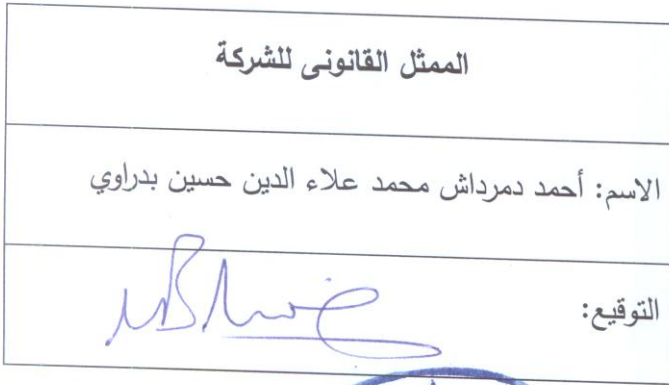 الممثل القانونى للشركة
الاسم: أحمد دمرداش محمد علاء الدين حسين بدراوي
التوقيع: